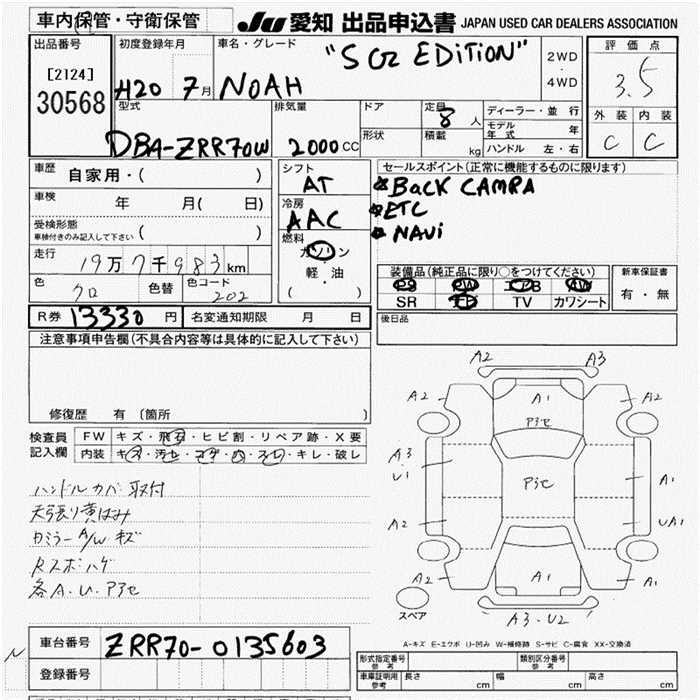 車内保管・守衛保管 JU 愛知 出品申込書 JAPAN USED CAR DEALERS ASSOCIATION
出品番号 初度登録年月 車名・グレード 評価点
[2124] H20 7月 NOAH "S G2 EDITION" 2WD・4WD 3.5
30568
型式 排気量 ドア 定員 8人 ディーラー・並行 外装 内装
DBA-ZRR70W 2000CC 形状 積載 kg モデル年式 年 C C
ハンドル 左・右
車歴 自家用・( ) シフト AT セールスポイント(正常に機能するものに限ります)
車検 年 月( 日) 冷房 AAC ★BACK CAMRA
受検形態 ★ETC
車検付きのみ記入して下さい( ) 燃料 ガソリン ★NAVi
走行 19万7千983km 軽・油
色 クロ 色替 色コード 202 ( )
装備品(純正品に限り○をつけてください) 新車保証書
PS PW エアB AW 有・無
SR TV カワシート
R券 13330円 名変通知期限 月 日 後日品
注意事項申告欄(不具合内容等は具体的に記入して下さい)
修復歴 有 (箇所 )
検査員 FW キズ・飛石・ヒビ割・リペア跡・X要
記入欄 内装 キズ・汚セ・コゲ・穴・スレ・キレ・破レ
ハンドルカバー取付
天張り黄ばみ
カミラーA/Wキズ
Rスポハゲ
各A.U.アワセ
A2 A3
A2 A1 A2
アワセ
A3
U1 アワセ A1
A2 UA1
A2 A1 A1
スペア A3・U2
A-キズ E-エクボ U-凹み W-補修跡 S-サビ C-腐食 XX-交換済
車台番号 ZRR70-0135603
登録番号
形式指定番号 参考 類別区分番号 参考
車庫証明用 参考 長さ cm 幅 cm 高さ cm